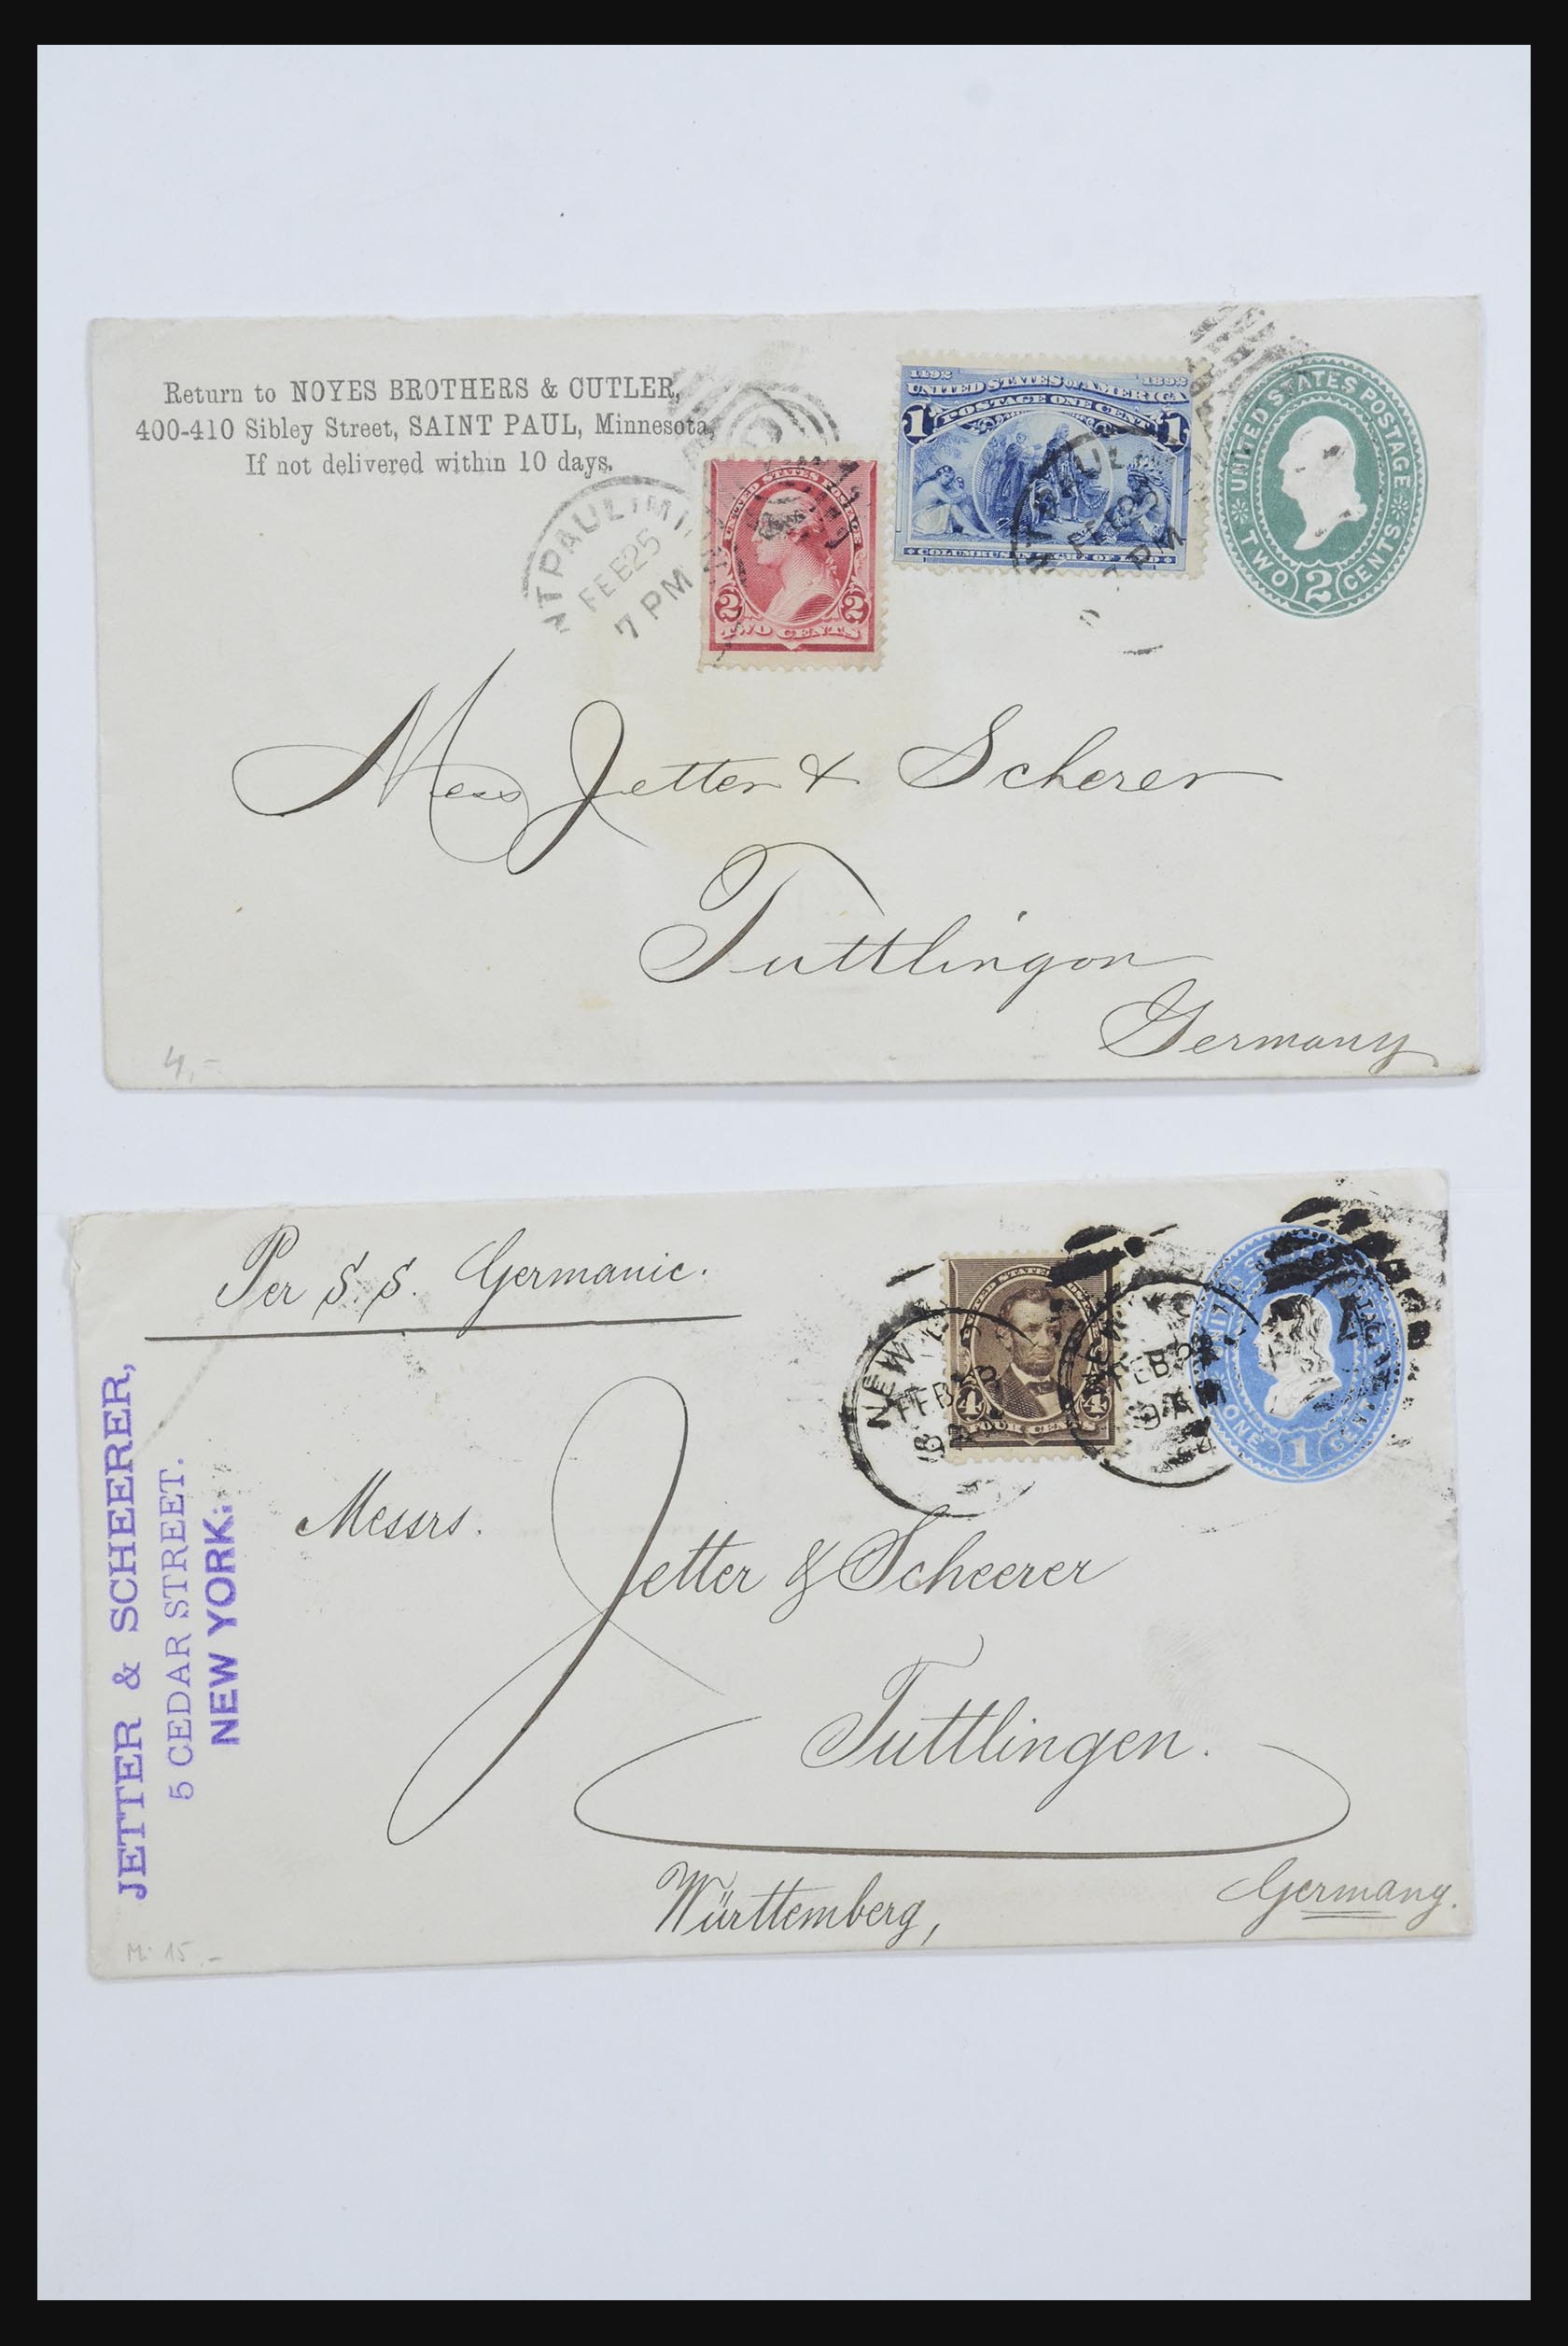 Return to NOYES BROTHERS & CUTLER,
400-410 Sibley Street, SAINT PAUL, Minnesota,
If not delivered within 10 days.
NT PAUL, MI
FEB 25
7 PM
UNITED STATES POSTAGE
2 2
TWO CENTS
1492 1892
UNITED STATES OF AMERICA
POSTAGE ONE CENT
1 1
COLUMBUS IN SIGHT OF LAND
PAUL
FEB 25
7 PM
UNITED STATES POSTAGE
TWO 2 CENTS
Mess Jetter & Scherer
Tuttlingon
Germany
4,-
Per S. S. Germanic.
JETTER & SCHEERER,
5 CEDAR STREET.
NEW YORK.
UNITED STATES POSTAGE
4 4
FOUR CENTS
NEW
FEB
NEW
FEB
9 AM
ONE 1 CENT
Messrs.
Jetter & Scheerer
Tuttlingen.
Württemberg,
Germany.
M: 15,-